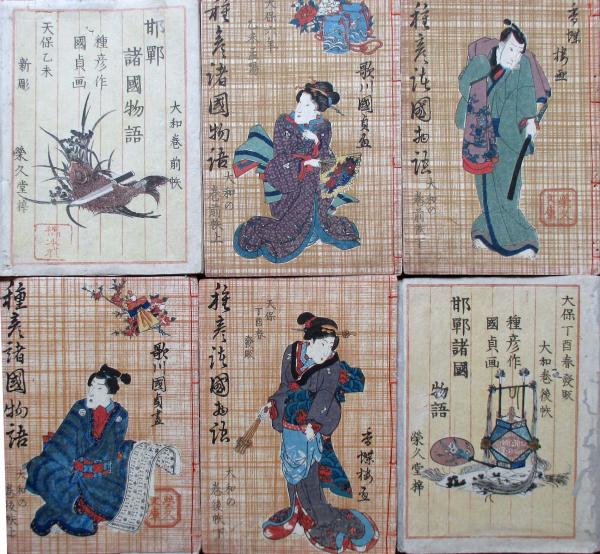 大和巻 前帙
種彦作
國貞画
邯鄲
諸國物語
天保乙未
新彫
榮久堂梓
歌川國貞画
種彦諸國物語
大和の
巻前帙上
香蝶楼画
種彦諸國物語
大和の
巻前帙下
歌川國貞画
種彦諸國物語
大和の
香蝶楼画
天保
丁酉春
發販
種彦諸國物語
大和の
巻後帙下
天保丁酉春發販
大和巻後帙
種彦作
國貞画
邯鄲諸國
物語
榮久堂梓